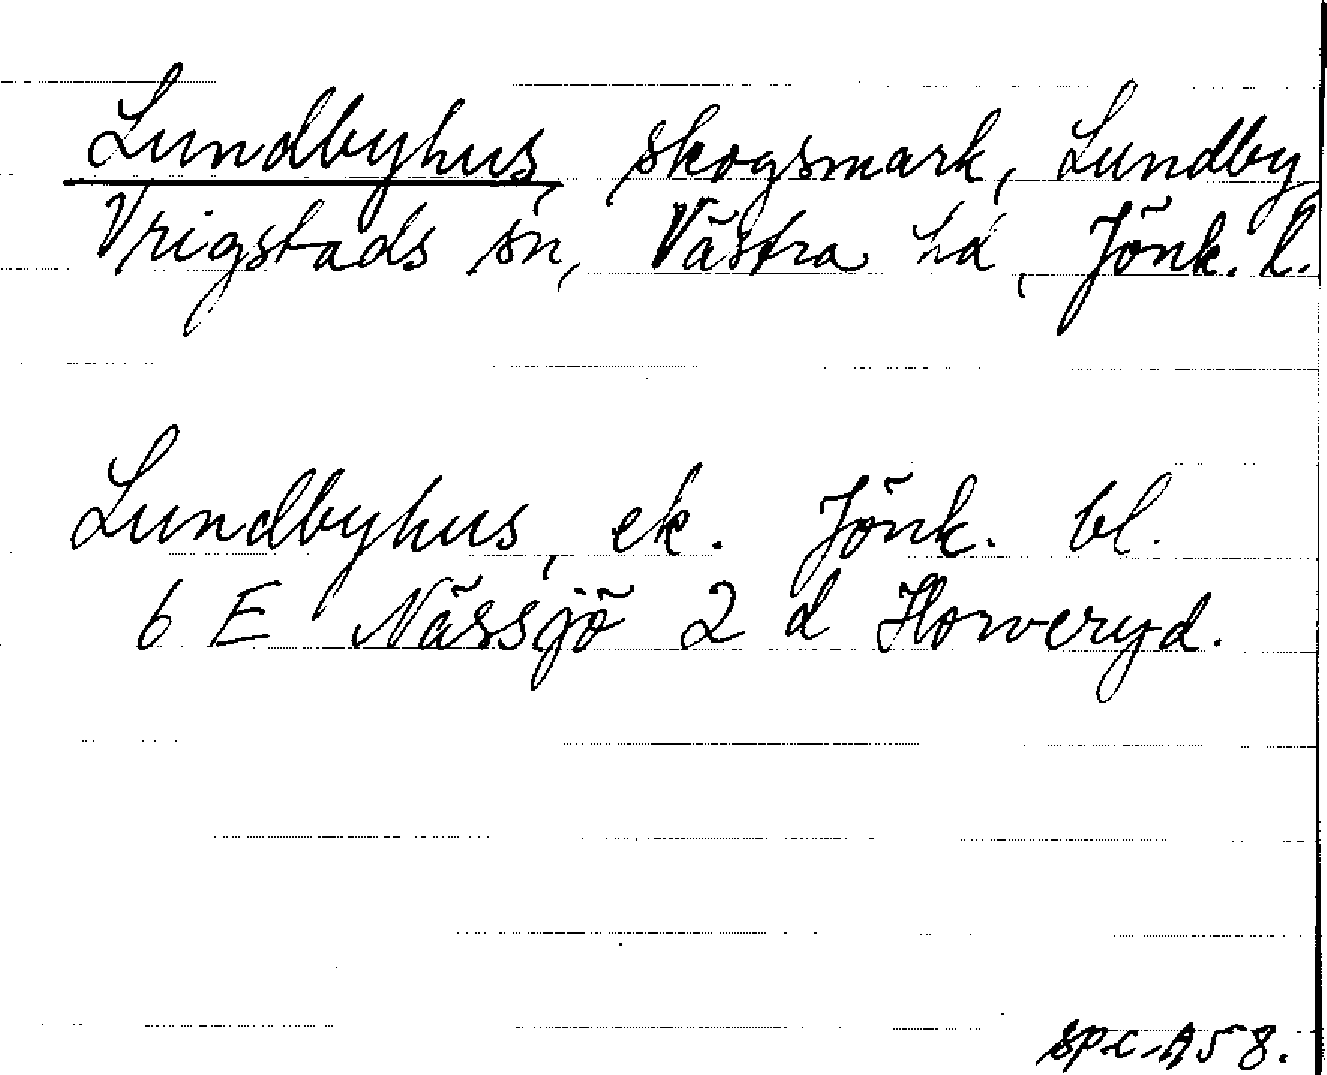 Lundbyhus, skogsmark, Lundby,
Vrigstads sn, Västra hd, Jönk. l.
Lundbyhus, ek. Jönk. bl.
6 E Nässjö 2 d Horveryd.
spc-A58.